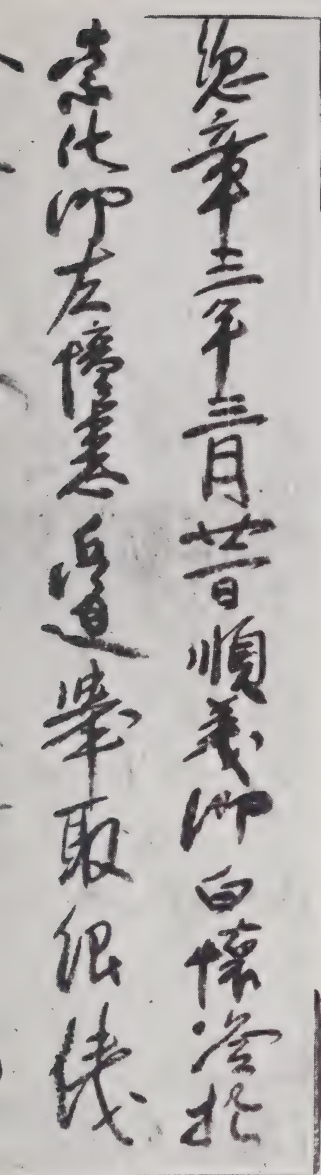 捴章三年三月廿一日順義鄉白懷洛於
崇化鄉左憧憙邊舉取銀錢